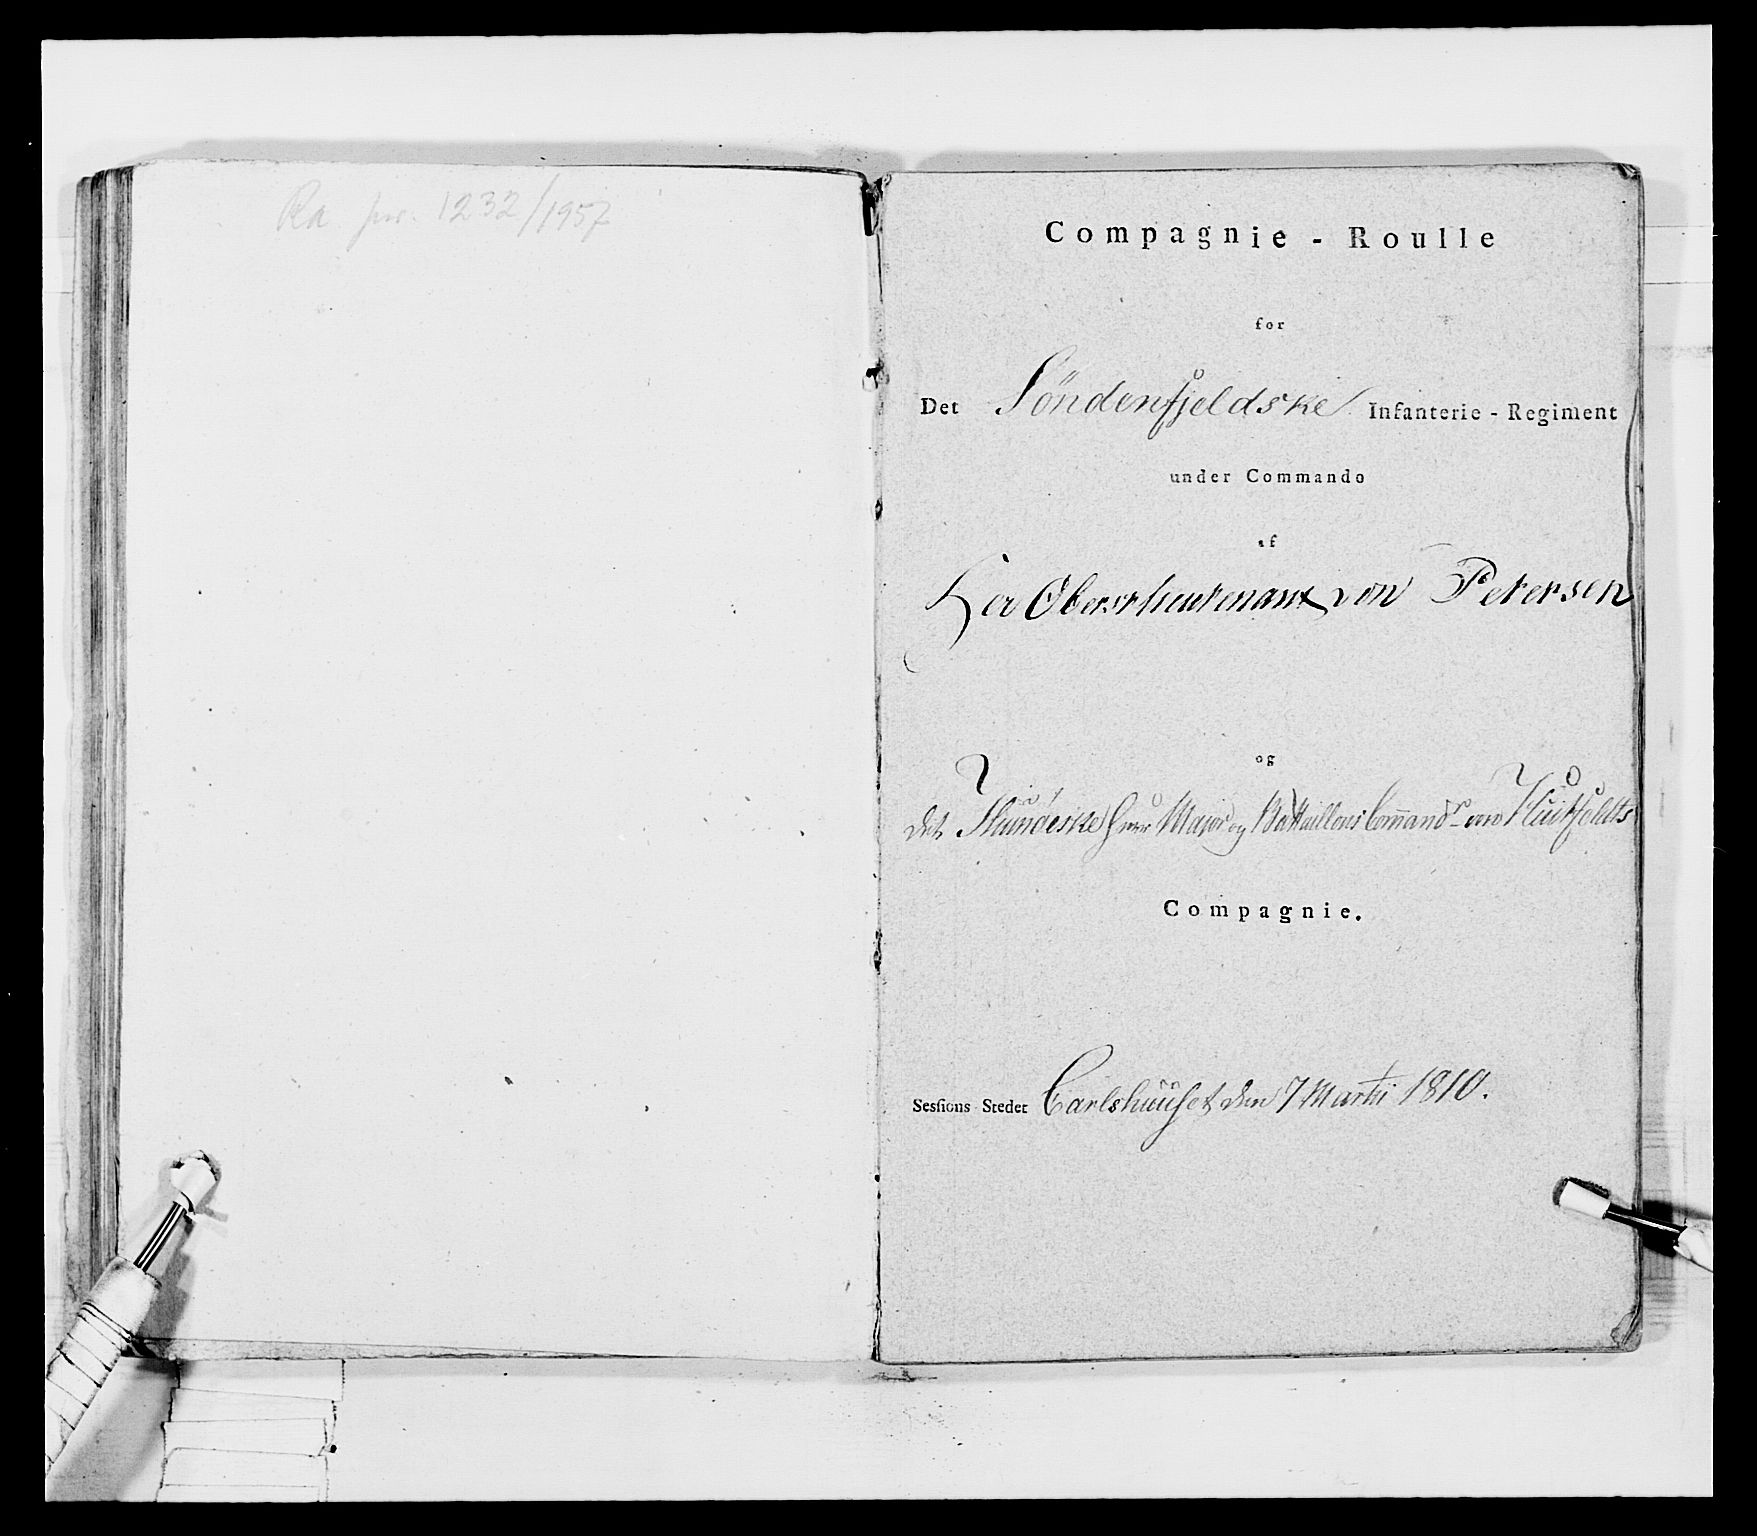 Ra jnr. 1232/1957
Compagnie - Roulle
for
Det Söndenfjeldske Infanterie - Regiment
under Commando
af
Her Oberstlieutenant von Petersen
og
det Hurumske Herr Major og Battaillons Command: von Huitfeldts
Compagnie.
Sessions Stedet Carlshuuset den 7 Martii 1810.